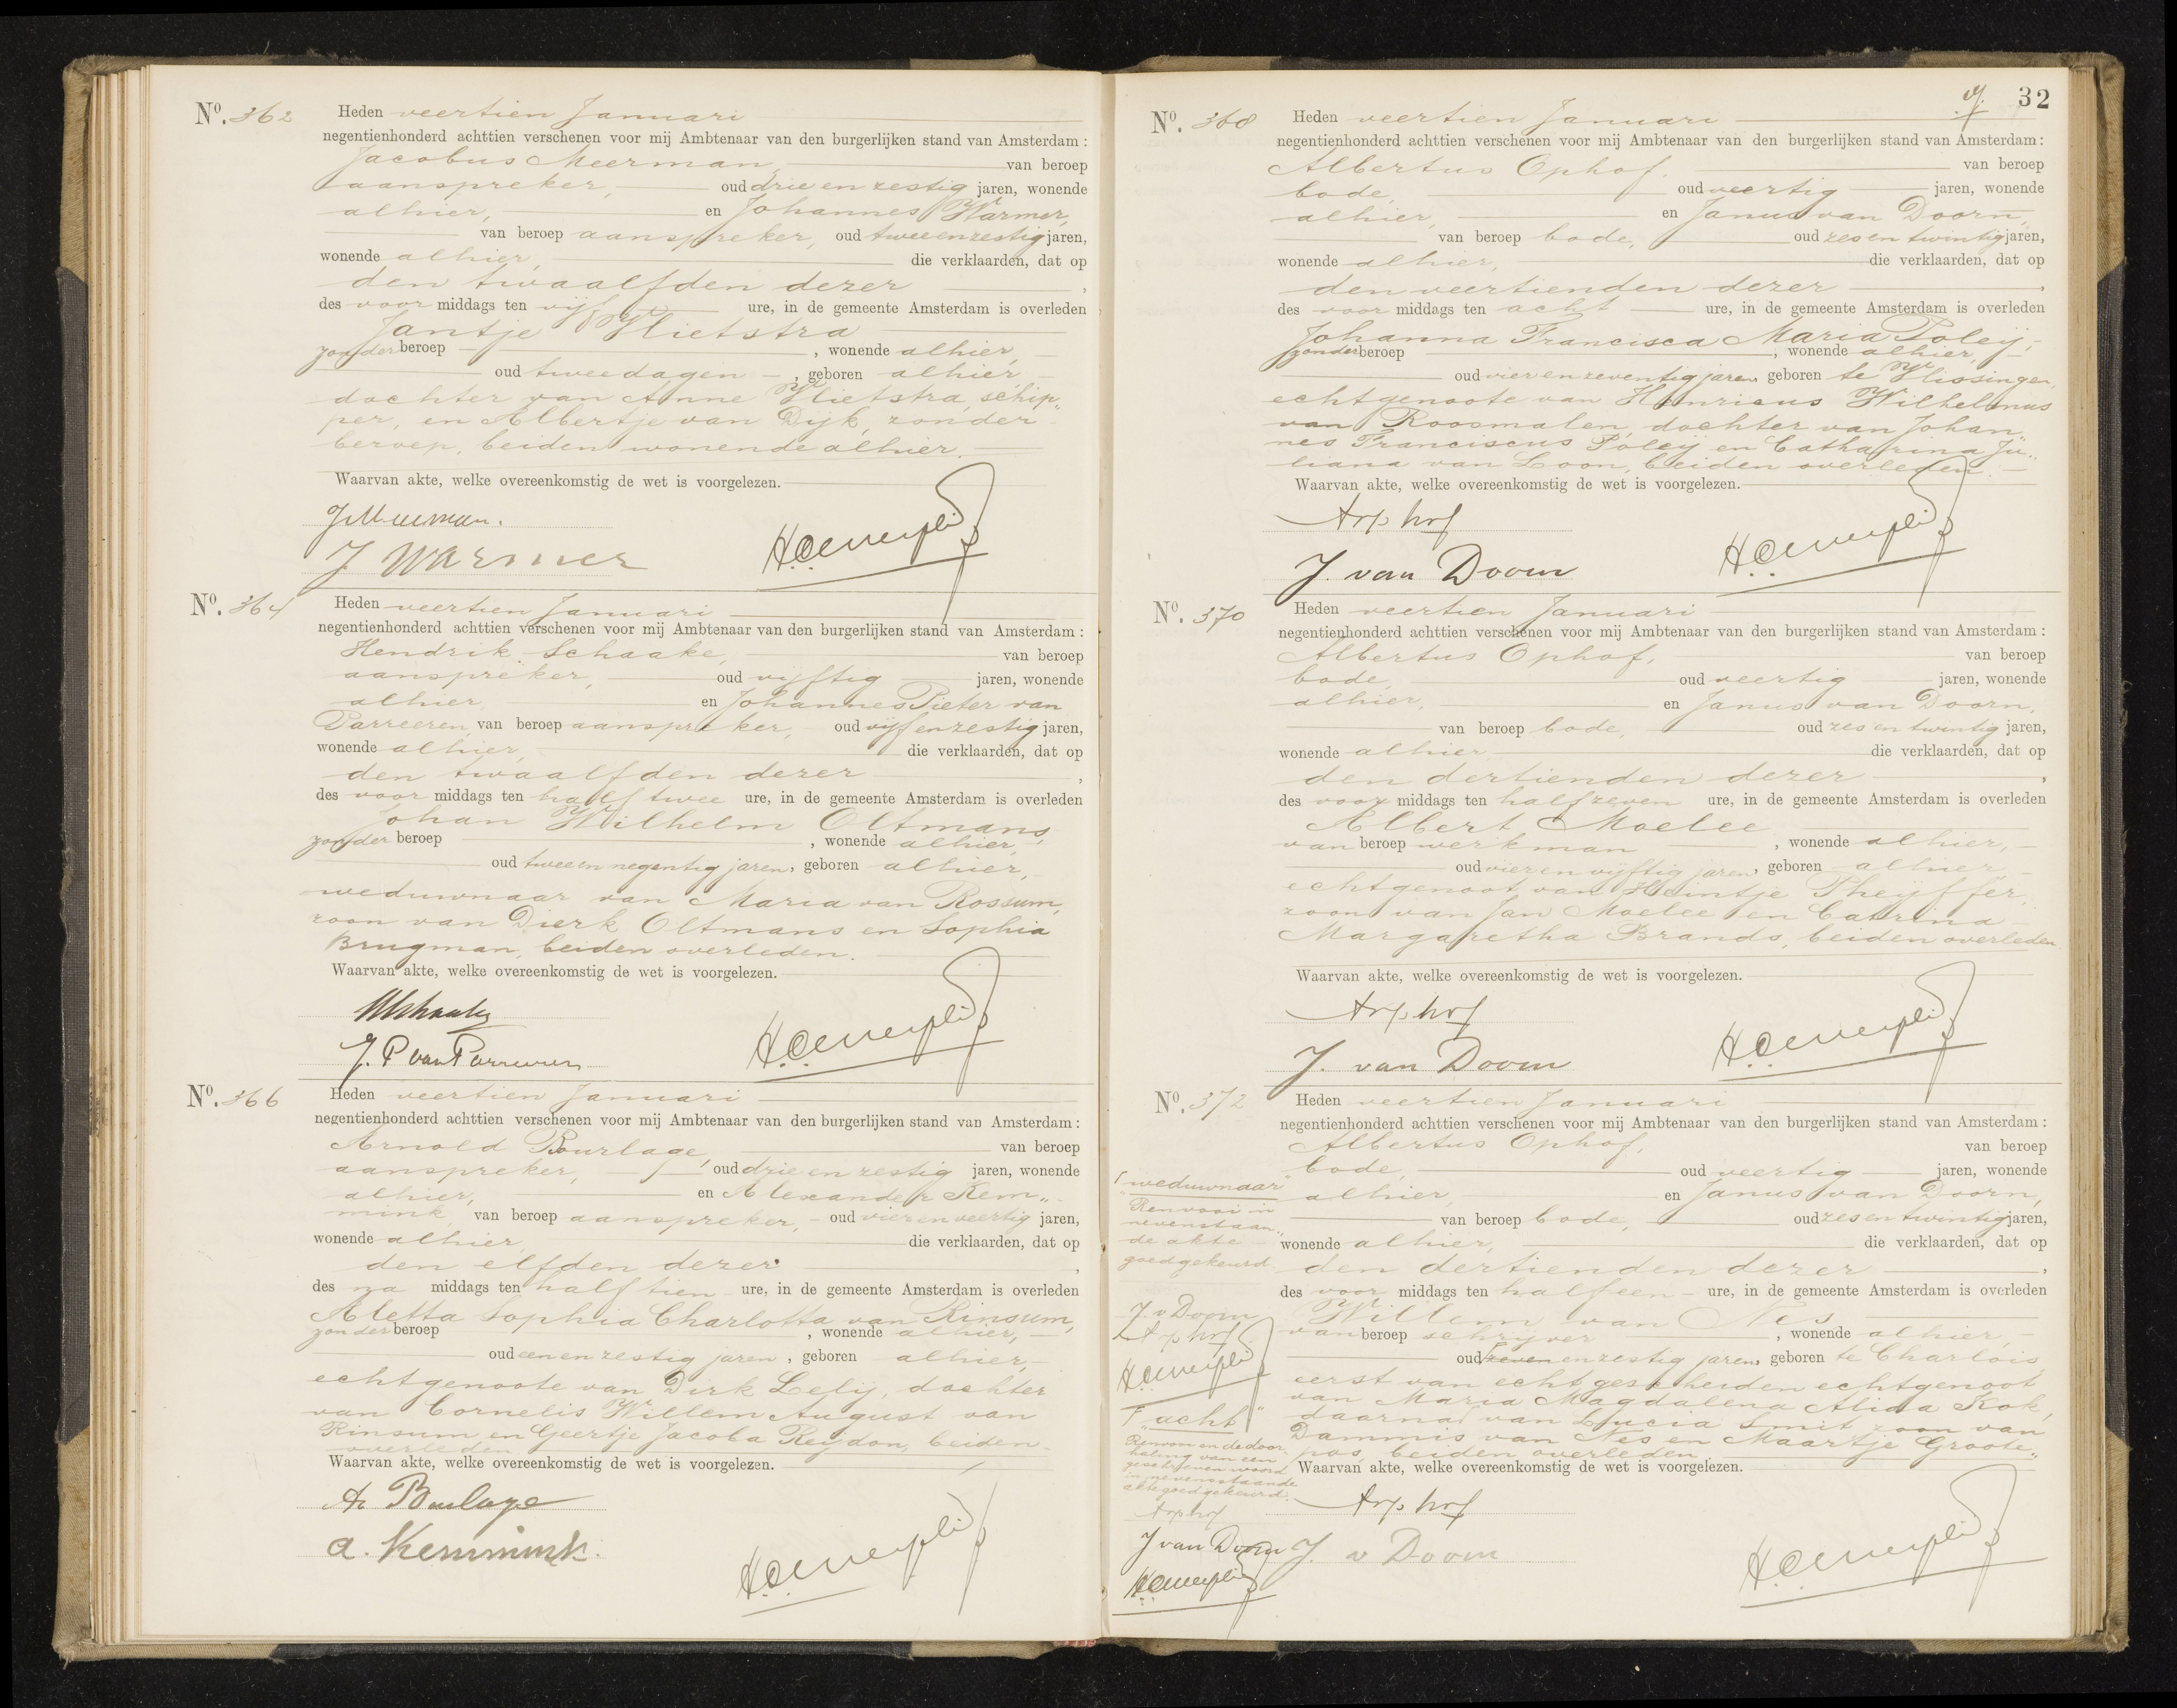 Nº. 362
Heden veertien Januari
negentienhonderd achttien verschenen voor mij Ambtenaar van den burgerlijken stand van Amsterdam:
Jacobus Meerman, van beroep
aanspreker, oud drie en zestig jaren, wonende
alhier, en Johannes Warmer,
van beroep aanspreker, oud tweeenzestig jaren,
wonende alhier, die verklaarden, dat op
den twaalfden dezer,
des voor middags ten vijf ure, in de gemeente Amsterdam is overleden
Jantje Vlietstra
zonder beroep, wonende alhier,
oud twee dagen, geboren alhier,
dochter van Anne Vlietstra, schip„
per, en Albertje van Dijk, zonder
beroep, beiden wonende alhier.
Waarvan akte, welke overeenkomstig de wet is voorgelezen.
J Meerman.
J Warmer
Nº. 364
Heden veertien Januari
negentienhonderd achttien verschenen voor mij Ambtenaar van den burgerlijken stand van Amsterdam:
Hendrik Schaake, van beroep
aanspreker, oud vijftig jaren, wonende
alhier, en Johannes Pieter van
Parreeren, van beroep aanspreker, oud vijf en zestig jaren,
wonende alhier, die verklaarden, dat op
den twaalfden dezer,
des voor middags ten half twee ure, in de gemeente Amsterdam is overleden
Johan Wilhelm Oltmans,
zonder beroep, wonende alhier,
oud twee en negentig jaren, geboren alhier,
weduwnaar van Maria van Rossum,
zoon van Dierk Oltmans en Sophia
Brugman, beiden overleden.
Waarvan akte, welke overeenkomstig de wet is voorgelezen.
HSchaake
J. P van Parreeren
Nº. 366
Heden veertien Januari
negentienhonderd achttien verschenen voor mij Ambtenaar van den burgerlijken stand van Amsterdam:
Arnold Bourlage, van beroep
aanspreker, oud drie en zestig jaren, wonende
alhier, en Alexander Kem„
mink, van beroep aanspreker, oud vier en veertig jaren,
wonende alhier, die verklaarden, dat op
den elfden dezer,
des na middags ten half tien ure, in de gemeente Amsterdam is overleden
Aletta Sophia Charlotta van Rinsum,
zonder beroep, wonende alhier,
oud een en zestig jaren, geboren alhier,
echtgenoote van Dirk Lelij, dochter
van Cornelis Willem August van
Rinsum, en Geertje Jacoba Reijdon, beiden
overleden
Waarvan akte, welke overeenkomstig de wet is voorgelezen.
A Bourlage
A. Kemmink.
32
Nº. 368
Heden veertien Januari
negentienhonderd achttien verschenen voor mij Ambtenaar van den burgerlijken stand van Amsterdam:
Albertus Ophof, van beroep
bode, oud veertig jaren, wonende
alhier, en Janus van Doorn,
van beroep bode, oud zes en twintig jaren,
wonende alhier, die verklaarden, dat op
den veertienden dezer,
des voor middags ten acht ure, in de gemeente Amsterdam is overleden
Johanna Francisca Maria Poleij,
zonder beroep, wonende alhier,
oud vier en zeventig jaren, geboren te Vlissingen,
echtgenoote van Henricus Wilhelmus
van Roosmalen, dochter van Johan„
nes Franciscus Poleij en Catharina Ju„
liana van Loon, beiden overleden.
Waarvan akte, welke overeenkomstig de wet is voorgelezen.
A Ophof
J. van Doorn
Nº. 370
Heden veertien Januari
negentienhonderd achttien verschenen voor mij Ambtenaar van den burgerlijken stand van Amsterdam:
Albertus Ophof, van beroep
bode, oud veertig jaren, wonende
alhier, en Janus van Doorn,
van beroep bode, oud zes en twintig jaren,
wonende alhier, die verklaarden, dat op
den dertienden dezer,
des voor middags ten half zeven ure, in de gemeente Amsterdam is overleden
Albert Moelee
van beroep werkman, wonende alhier,
oud vier en vijftig jaren, geboren alhier,
echtgenoot van Heintje Pheijffer,
zoon van Jan Moelee en Catrina
Margaretha Brands, beiden overleden.
Waarvan akte, welke overeenkomstig de wet is voorgelezen.
A Ophof
J. van Doorn
Nº. 372
Heden veertien Januari
negentienhonderd achttien verschenen voor mij Ambtenaar van den burgerlijken stand van Amsterdam:
Albertus Ophof, van beroep
bode, oud veertig jaren, wonende
alhier, en Janus van Doorn,
van beroep bode, oud zes en twintig jaren,
wonende alhier, die verklaarden, dat op
den dertienden dezer,
des voor middags ten half een ure, in de gemeente Amsterdam is overleden
Willem van Nes
van beroep schrijver, wonende alhier,
oud zeven en zestig jaren, geboren te Charlois,
eerst van echt gescheiden echtgenoot
van Maria Magdalena Alida Kok,
daarna van Lucia Smit, zoon van
Dammis van Nes en Maartje Groote„
pas, beiden overleden.
Waarvan akte, welke overeenkomstig de wet is voorgelezen.
A Ophof
J. v Doorn
„weduwnaar"
Renvooi in
nevenstaan„
de akte
goedgekeurd.
J. v Doorn
A Ophof
„acht"
Renvooi en de door„
haling van een
geschreven woord
in nevenstaande
akte goedgekeurd.
A Ophof
J van Doorn